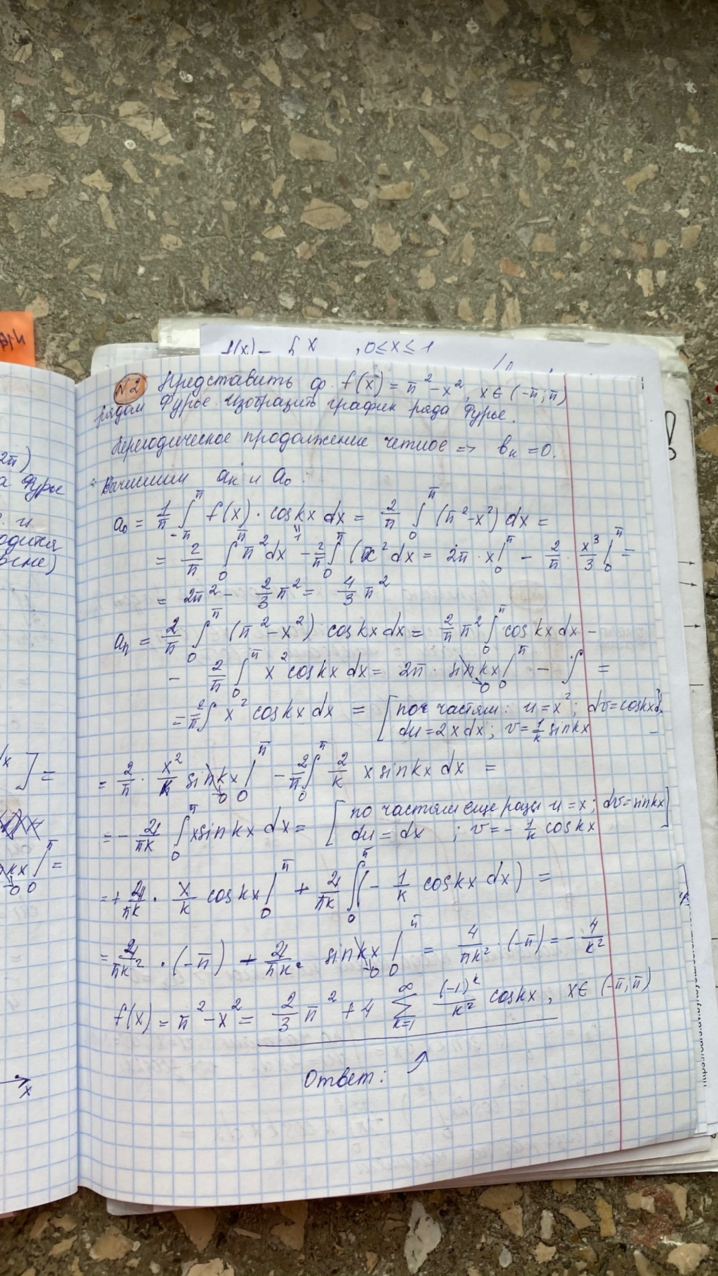 f(x) = { x , 0≤x≤1
№2 Представить ф. f(x) = π² - x², x ∈ (-π; π)
рядом Фурье изобразить график ряда Фурье.
Периодическое продолжение четное => bₙ = 0.
Вычислим aₙ и a₀ :
a₀ = 1/π ∫_{-π}^{π} f(x) · cos kx dx = 2/π ∫_0^π (π² - x²) dx =
= 2/π ∫_0^π π² dx - 2/π ∫_0^π (x² dx = 2π · x |_0^π - 2/π · x³/3 |_0^π =
= 2π² - 2/3 π² = 4/3 π²
aₙ = 2/π ∫_0^π (π² - x²) cos kx dx = 2/π π² ∫_0^π cos kx dx -
- 2/π ∫_0^π x² cos kx dx = 2π · sin kx |_0^π - ∫ =
= 2/π ∫ x² cos kx dx = [по частям: u = x²; dv = cos kx
du = 2x dx; v = 1/k sin kx
= 2/π · x²/k sin kx |_0^π - 2/π ∫_0^π 2/k x sin kx dx =
= - 4/πk ∫_0^π x sin kx dx = [по частям еще разы u = x; dv = sin kx]
du = dx ; v = - 1/k cos kx
= + 4/πk · x/k cos kx |_0^π + 4/πk ∫_0^π (- 1/k cos kx dx) =
= 4/πk² · (-π) - 4/πk² · sin kx |_0^π = 4/πk² · (-π) = - 4/k²
f(x) = π² - x² = 2/3 π² + 4 ∑_{k=1}^∞ (-1)^k/k² cos kx , x ∈ (-π; π)
Ответ:
x